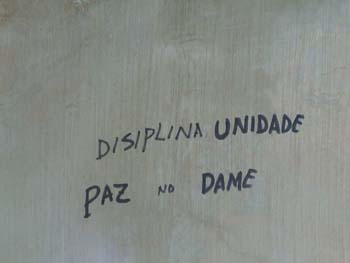 DISIPLINA UNIDADE
PAZ NO DAME